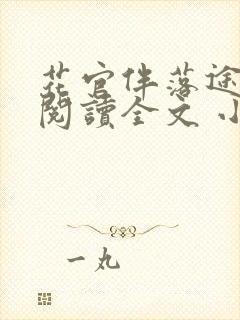 花官伴落途
閱讀全文 小
一丸